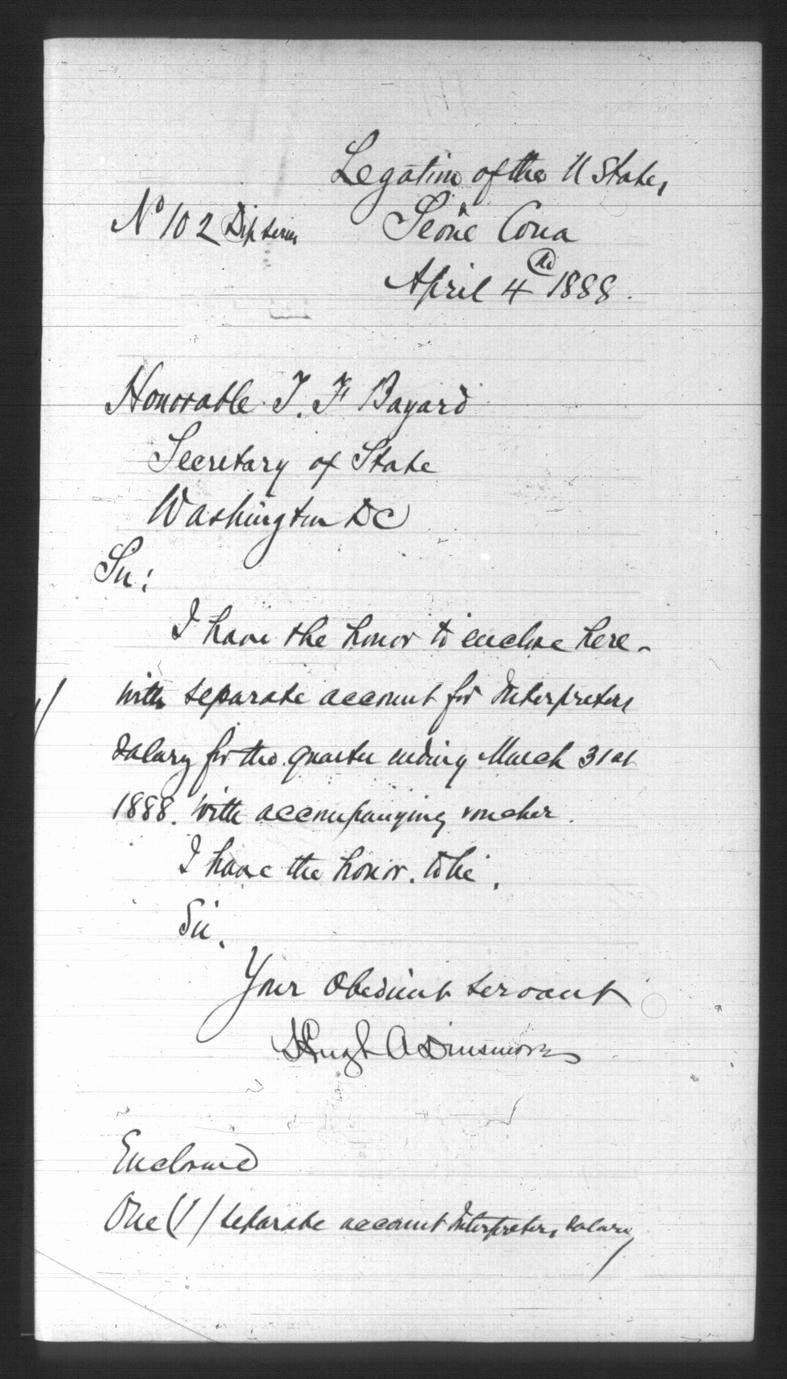 Legation of the U States,
No 102 Dip series
Seoul Corea
April 4th 1888.
Honorable T. F Bayard
Secretary of State
Washington DC
Sir:
I have the honor to enclose here-
with separate account for Interpreters
salary for the quarter ending March 31st
1888. with accompanying voucher.
I have the honor. to be,
Sir,
Your obedient servant
Hugh A Dinsmore
Enclosed
One (1) separate account Interpreters salary